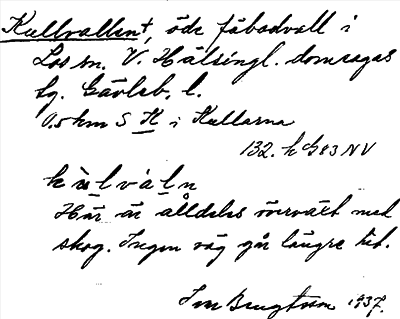 Kullvallen†, öde fäbodvall i
Los sn. V. Hälsingl. domsagas
tg. Gävleb. l.
0.5 km S K i Kullarna
132. h G 83 NV
kùlváln
Här är alldeles övervuxet med
skog. Ingen väg går längre hit.
Bengtsson 1937.